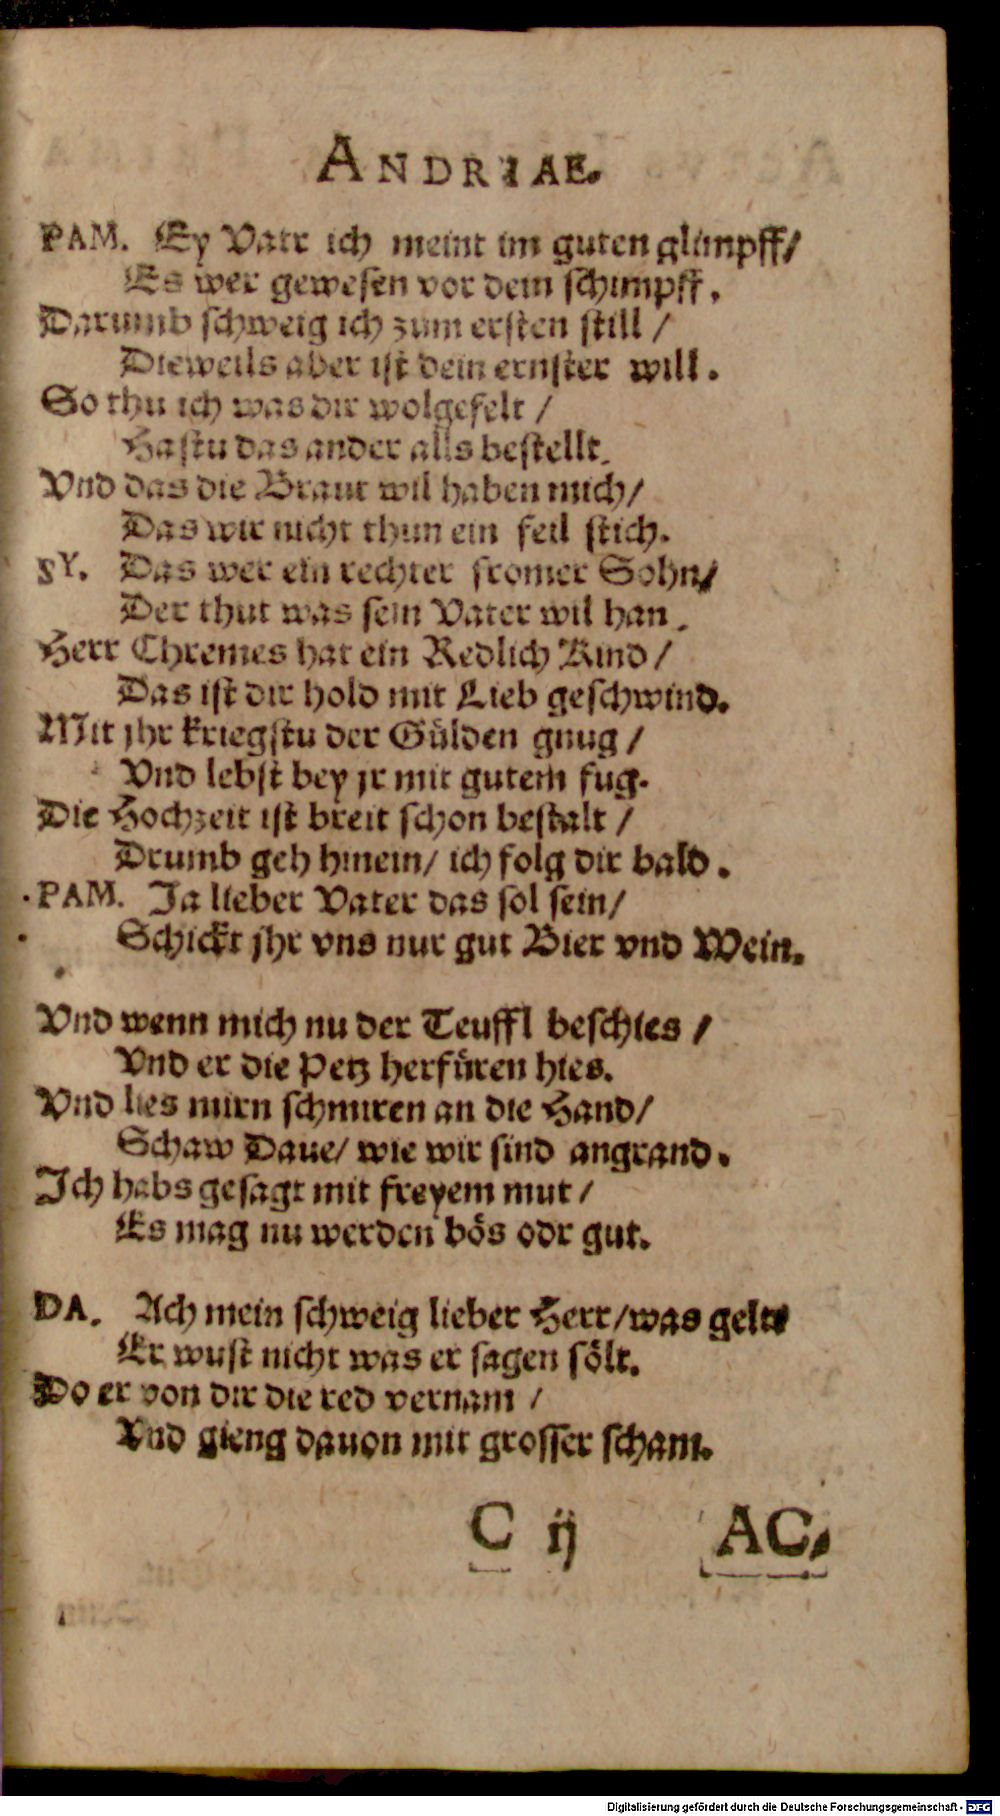 ANDRIAE.
PAM. Ey Vatr ich meint im guten glimpff/
Es wer gewesen vor dem schimpff.
Darumb schweig ich zum ersten still /
Dieweils aber ist dein ernster will.
So thu ich was dir wolgefelt /
Hastu das ander alls bestellt.
Vnd das die Braut wil haben mich/
Das wir nicht thun ein feil stich.
SY. Das wer ein rechter fromer Sohn/
Der thut was sein Vater wil han.
Herr Chremes hat ein Redlich Kind /
Das ist dir hold mit Lieb geschwind.
Mit jhr kriegstu der Gülden gnug /
Vnd lebst bey jr mit gutem fug.
Die Hochzeit ist breit schon bestalt /
Drumb geh hinein/ ich folg dir bald.
PAM. Ja lieber Vater das sol sein/
Schickt jhr vns nur gut Bier vnd Wein.
Vnd wenn mich nu der Teuffl beschies /
Vnd er die Petz herfüren hies.
Vnd lies mirn schmiren an die Hand/
Schaw Daue/ wie wir sind angrand.
Ich habs gesagt mit freyem mut /
Es mag nu werden bös odr gut.
DA. Ach mein schweig lieber Herr/was gelts
Er wust nicht was er sagen sölt.
Do er von dir die red vernam /
Vnd gieng dauon mit grosser scham.
C ij AC.
Digitalisierung gefördert durch die Deutsche Forschungsgemeinschaft - DFG